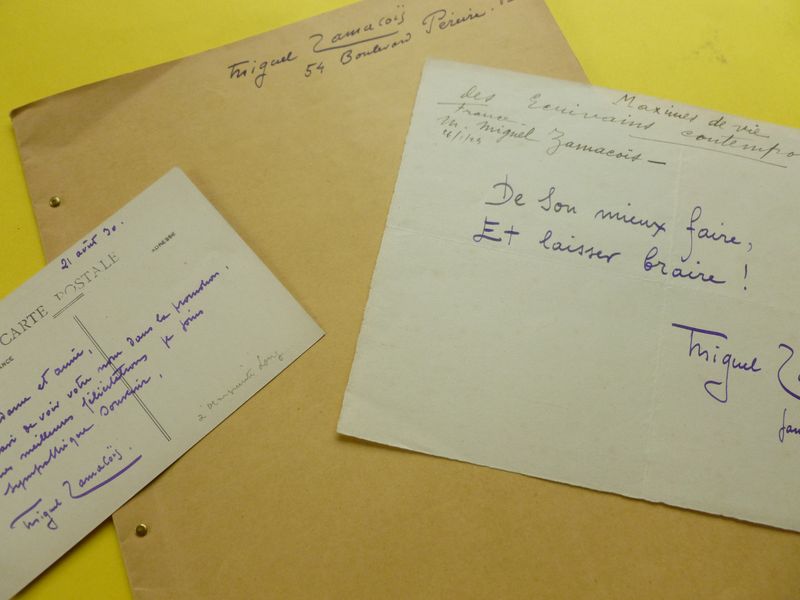 Miguel Zamacoïs
54 Boulevard Péreire.
Maximes de vie
des Ecrivains contempo
France
M. Miguel Zamacoïs —
De son mieux faire,
Et laisser braire !
Miguel Za
21 août 30.
CARTE POSTALE
ADRESSE
ANCE
dame et amie,
avi de voir votre nom dans la promotion,
mes meilleures félicitations je joins
sympathique souvenir,
Miguel Zamacoïs.
à Marguerite Long